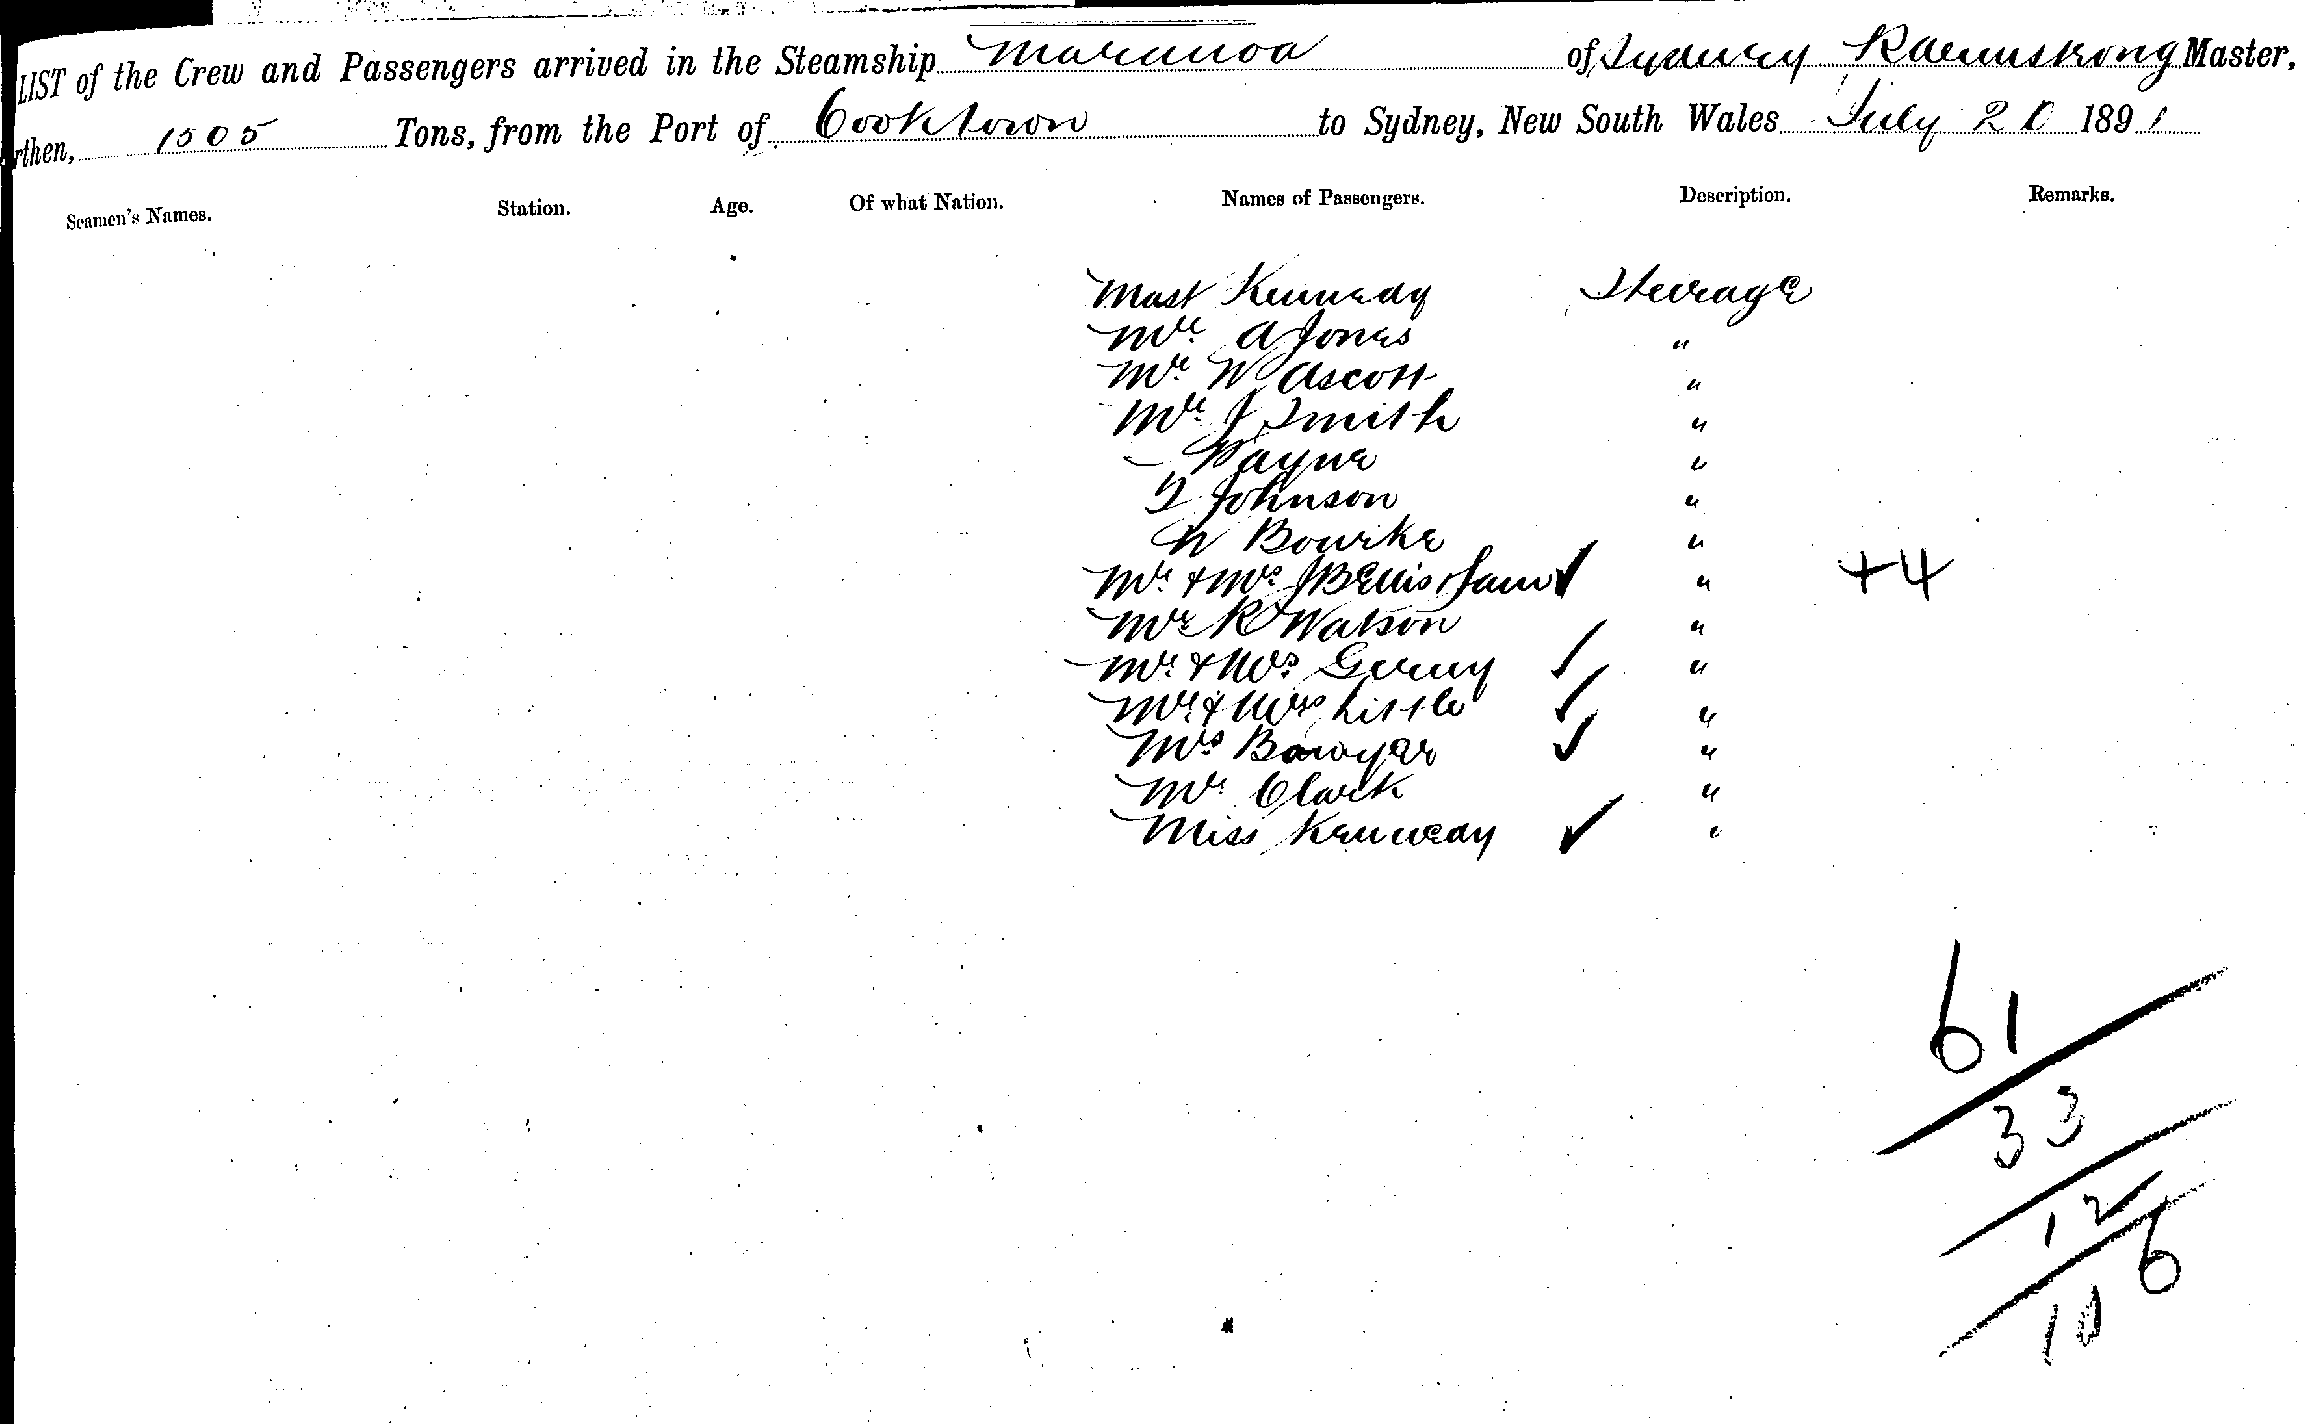 LIST of the Crew and Passengers arrived in the Steamship Maranoa of Sydney R Armstrong Master,
rthen, 1505 Tons, from the Port of Cooktown to Sydney, New South Wales July 20 1891
Seamen's Names. Station. Age. Of what Nation. Names of Passengers. Description. Remarks.
Mast Kennedy Steerage
Mr. A Jones "
Mr. W Ascott "
Mr. J Smith "
— Payne "
T Johnson "
W Bourke "
Mr. & Mrs J B Ellis & fam ✓ " +4
Mr R Watson "
Mr. & Mrs ✓ "
Mr. & Mrs Little ✓ "
Mrs Bowyer ✓ "
Mr. Clark "
Miss Kennedy ✓ "
61
33
12
6
10